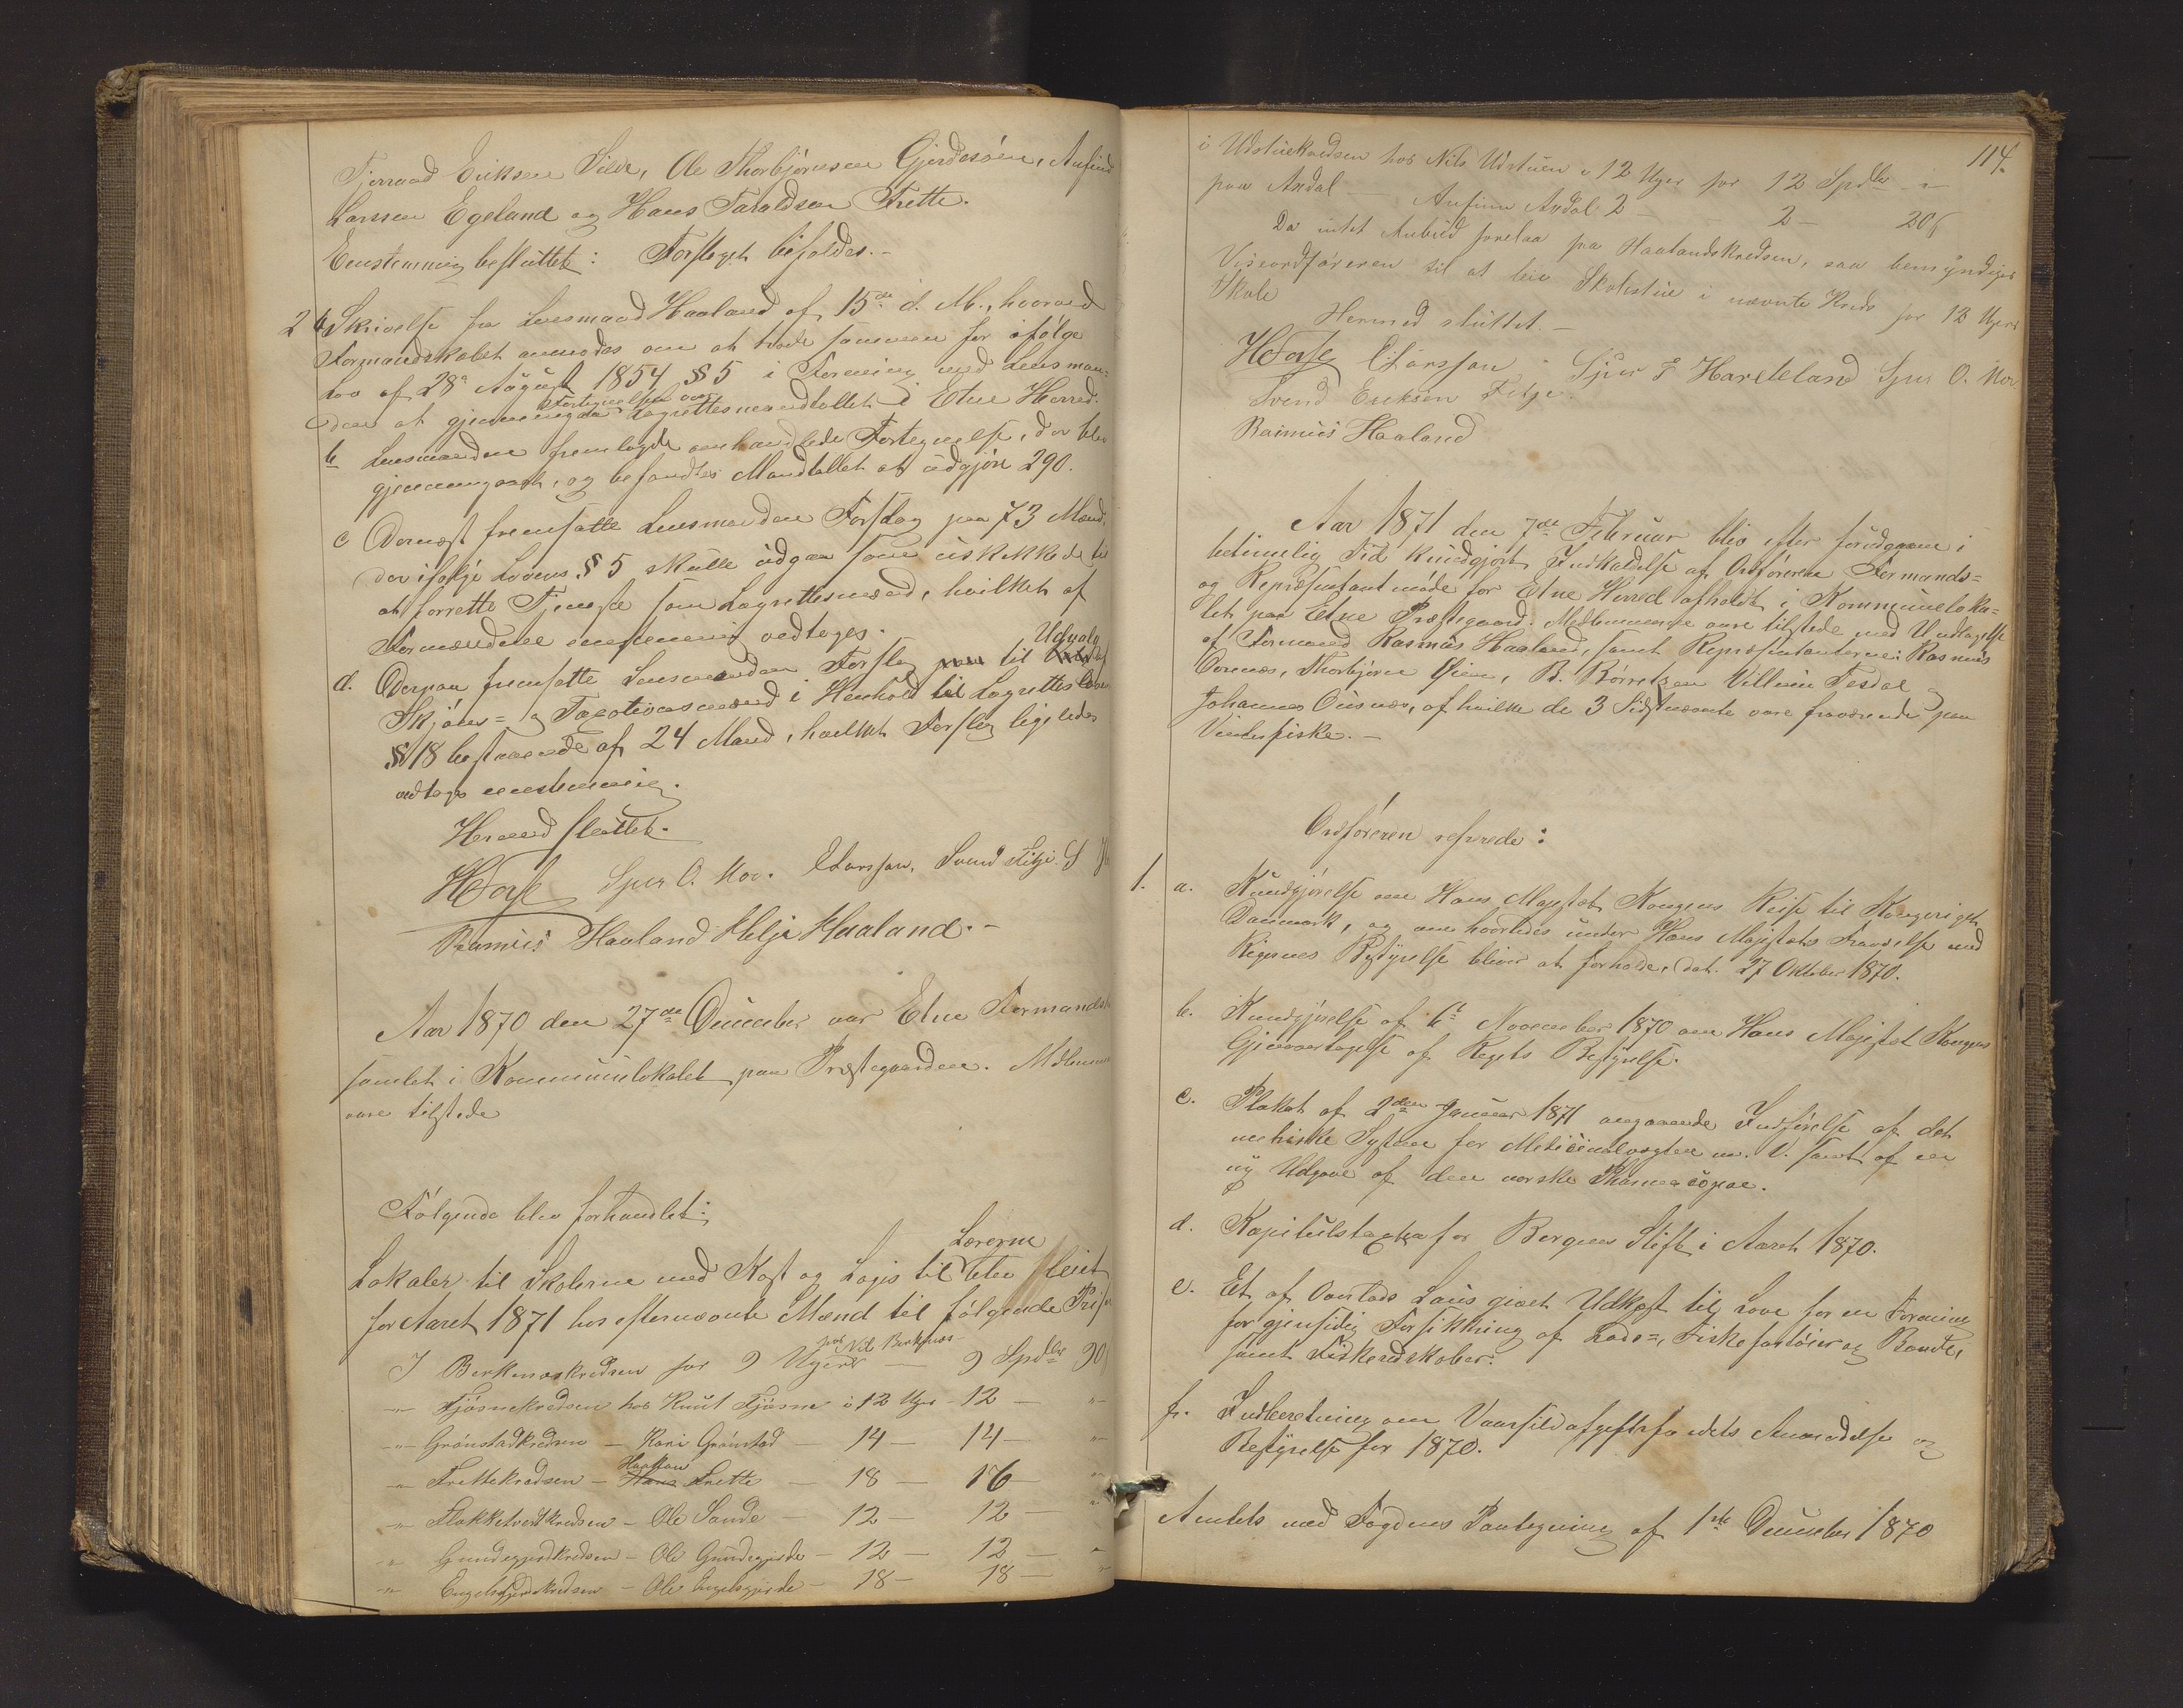 Tjerand Eriksen Silde, Ole Thorbjørnsen Gjerdesøen, Anfind
Larssen Egeland og Hans Taraldsen Frette.
Eenstemmig besluttet: Forslaget bifaldes.-
2 a Skrivelse fra Lensmand Haaland af 15de d. M., hvorved
Formandskabet anmodes om at træde sammen for ifølge
Lov af 28de August 1854 § 5 i Forening med Lensman-
den at gjennemgaa Fortegnelsen over Lagrettesmandtallet i Etne Herred.
b Lensmanden fremlagde omhandlede Fortegnelse, der blev
gjennemgaaet, og befandtes Mandtallet at udgjøre 290.
c Dernæst fremsatte Lensmanden Forslag paa 73 Mænd,
der ifølge Lovens § 5 skulle udgaa som uskikkede til
at forrette Tjeneste som Lagrettesmænd, hvilket af
Formændene eenstemmig vedtoges.
d. Derpaa fremsatte Lensmanden Forslag til Udvalg af
Skjøns- og Taxationsmænd i Henhold til Lagretteslovens
§ 18 bestaaende af 24 Mand, hvilket Forslag ligeledes
vedtoges eenstemmig.
Hermed sluttet.
HTorst Sjur O. Moe. ELarssen, Svend Fitje. S
Rasmus Haaland Helje Haaland.-
Aar 1870 den 27de December var Etne Formandsk
samlet i Kommunelokalet paa Præstegaarden. Medlemmerne
vare tilstede
Følgende blev forhandlet:
Lokaler til Skolerne med Kost og Logis til Lærerne blev leiet
for Aaret 1871 hos efternævnte Mænd til følgende Priser
I Berkenæskredsen for 9 Uger hos Nil Berkenæs - 9 Spdlr 90
-"- Fjøsnekredsen hos Knut Fjøsne i 12 Uger - 12 - "
-"- Grønstadkredsen - Kari Grønstad - 14 - 14 - "
-"- Frettekredsen - Haaken Frette - 18 - 16 - "
-"- Flokketveitkredsen - Ole Sande - 12 - 12 - "
-"- Gundegjerdkredsen - Ole Gundegjerde - 12 - 12 - "
-"- Engelsgjerdkredsen - Ole Engelsgjerde - 18 - 18 - "
114.
i Udstuekredsen hos Nils Udstuen i 12 Uger for 12 Spdlr - "-
paa Ardal - Anfinn Ardal 2 - 2 - 20 ß
Da intet Anbud forelaa fra Haalandskredsen, saa bemyndiges
Viceordføreren til at leie Skolestue i nævnte Kreds for 12 Ugers
Skole
Hermed sluttet.-
HTorst ELarssen Sjur T Hardeland Sjur O. Moe
Svend Eriksen Fitje.
Rasmus Haaland
Aar 1871 den 7de Februar blev efter forudgaaen i
betimelig Tid kundgjort Indkaldelse af Ordføreren Formands-
og Repræsentantmøde for Etne Herred afholdt i Kommuneloka-
let paa Etne Præstegaard. Medlemmerne vare tilstede med Undtagelse
af Formand Rasmus Haaland, samt Repræsentanterne: Rasmus
Oernæs, Thorbjørn Øien, B. Børretzen Villum Tesdal og
Johannes Ousnæs, af hvilke de 3 Sidstnævnte vare fraværende paa
Vinterfiske.-
Ordføreren refererede:
1. a. Kundgjørelse om Hans Majestæt Kongens Reise til Kongeriget
Danmark, og om hvorledes under Hans Majestæts Fraværelse med
Rigernes Bestyrelse bliver at forholde, dat. 27 Oktober 1870.
b. Kundgjørelse af 6te November 1870 om Hans Majestæt Kongens
Gjenovertagelse af Regjets Bestyrelse.
c. Plakat af 2den Januar 1871 angaaende Indførelse af det
metriske System for Medicinalvægten m. V. samt af en
ny Udgave af den norske Pharmacopoe.
d. Kapitulstaxten for Bergens Stift i Aaret 1870.
e. Et af Oberlods Lous givet Udkast til Love for en Forening
for gjensidig Forsikkring af Lods-, Fiskefartøier og Baade,
samt Fiskeredskaber.
f. Indberetning om Vaarsildafgiftsfondets Anvendelse og
Bestyrelse for 1870.
Amtets med Fogdens Paategning af 1ste December 1870